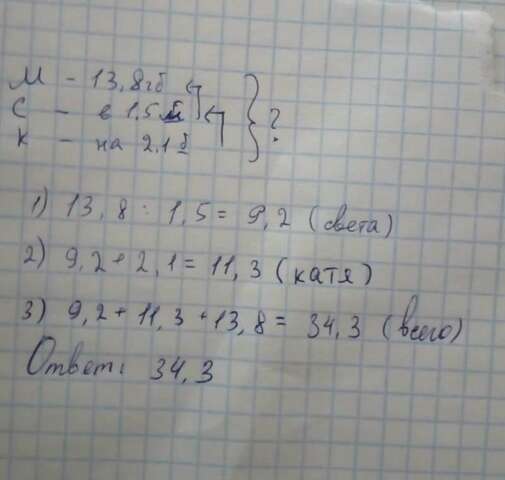 М - 13,8 гб
С - в 1,5 м
К - на 2,1 б
?
1) 13,8 : 1,5 = 9,2 (света)
2) 9,2 + 2,1 = 11,3 (катя)
3) 9,2 + 11,3 + 13,8 = 34,3 (всего)
Ответ: 34,3